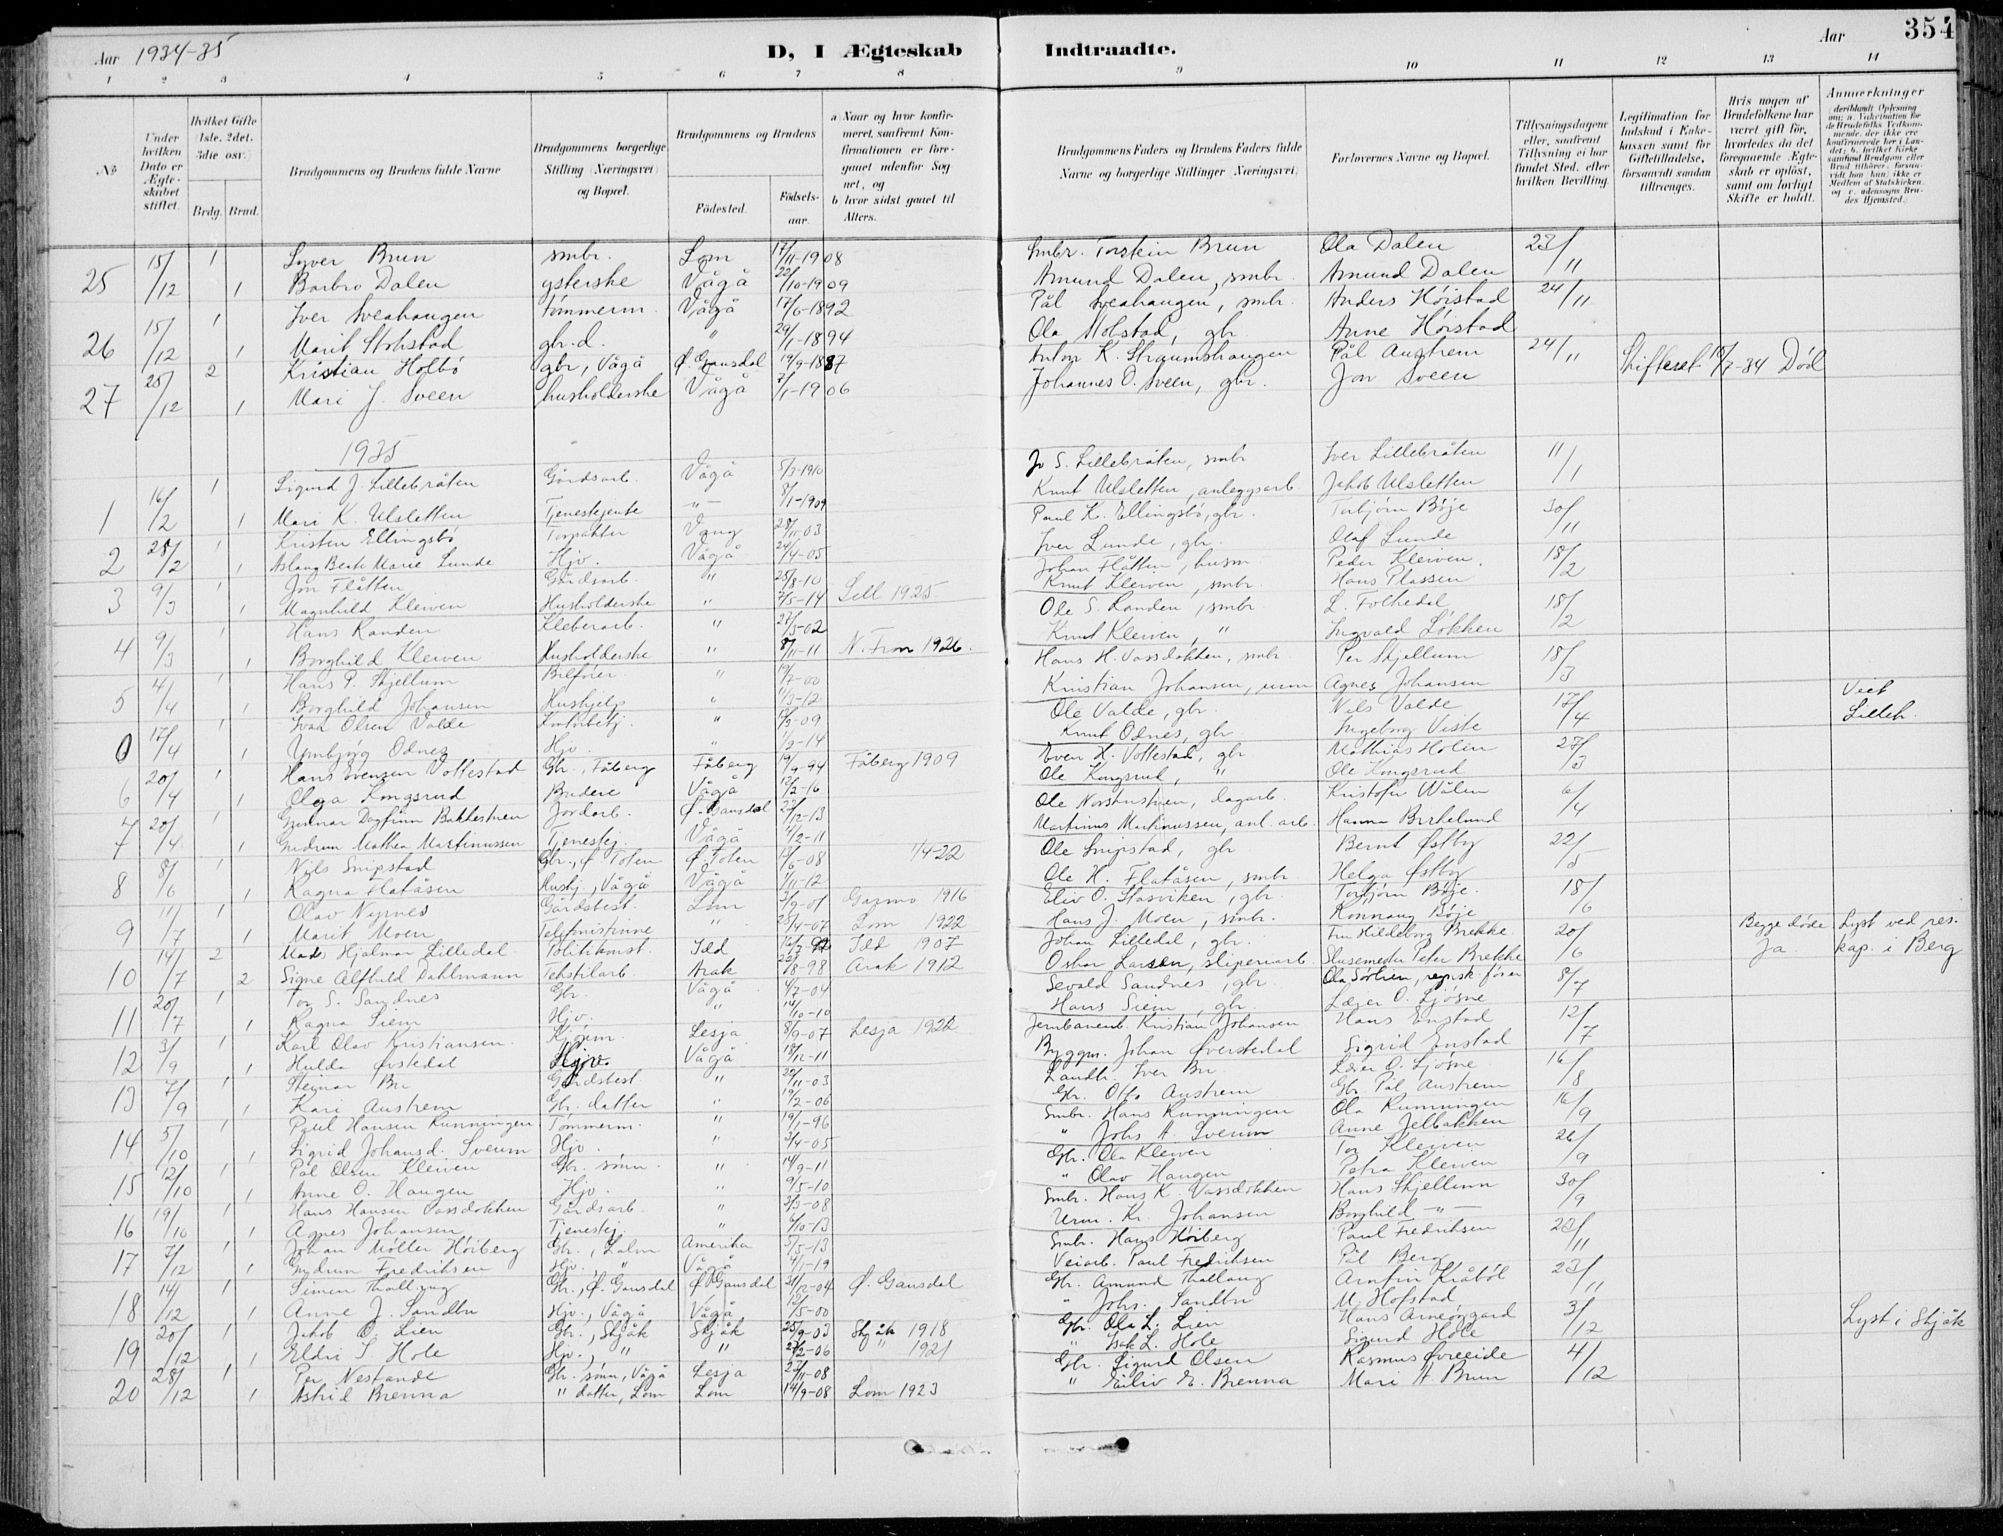 Aar 1934-35 D, I Ægteskab Indtraadte. Aar 354
1 2 3 4 5 6 7 8 9 10 11 12 13 14
No Under hvilken Dato er Ægteskabet stiftet. Hvilket Gifte (1ste, 2det, 3die osv.) Brdg. Brud. Brudgommens og Brudens fulde Navne Brudgommens borgerlige Stilling (Næringsvei) og Bopæl. Brudgommens og Brudens Fødested. Fødsels-aar. a Naar og hvor konfirmeret, saafremt Konfirmationen er foregaaet udenfor Sognet, og b hvor sidst gaaet til Alters. Brudgommens Faders og Brudens Faders fulde Navne og borgerlige Stillinger (Næringsvei) Forlovernes Navne og Bopæl. Tillysningsdagene eller, saafremt Tillysning ei har fundet Sted, efter hvilken Bevilling. Legitimation for Indskud i Enkekassen samt for Giftetilladelse, forsaavidt saadan tiltrænges. Hvis nogen af Brudefolkene har været gift før, hvorledes da det foregaaende Ægteskab er opløst, samt om lovligt Skifte er holdt. Anmærkninger
25 15/12 1 Syver Brun smbr. Lom 17/11-1908 Smbr. Torstein Brun Ola Dalen 23/11
1 Barbro Dalen ysterske Vågå 22/10-1909 Amund Dalen, smbr. Amund Dalen
26 15/12 1 Iver Sveahaugen tømmerm. Vågå 17/6-1892 Pål Sveahaugen, smbr. Anders Høistad 24/11
1 Marit Stolstad gbr.d. " 29/1-1894 Ola Stolstad, gbr Anne Høistad
27 25/12 2 Kristian Holbø gbr, Vågå Ø. Gausdal 19/9-1887 Anton K. Straumshaugen Pål Austrem 24/11 Skifteret 18/7-34 Død
1 Mari J. Sveen husholderske Vågå 7/1-1906 Johannes O. Sveen, gbr. Jon Sveen
1935
1 16/2 1 Sigurd J. Lillebråten Gårdsarb. Vågå 5/7-1910 Jo S. Lillebråten, smbr Iver Lillebråten 11/1
1 Mari K. Ulsletten Tjenestejente -"- 8/1-1909 Knut Ulsletten, anleggsarb. Jakob Ulsletten
2 28/2 1 Kristen Ellingsbø Vang 28/11-03 Paul K. Ellingsbø, gbr. Torbjørn Bøje 30/11
1 Aslaug Beate Marie Lunde Hjv. Vågå 24/4-05 Iver Lunde, gbr. Olaf Lunde
3 9/3 1 Jon Flåtten Gårdsarb. " 25/8-10 Johan Flåtten, husm Peder Kleiven. 18/2
1 Magnhild Kleiven Husholderske " 7/5-14 Sell 1925 Knut Kleiven, smbr. Hans Plassen
4 9/3 1 Hans Randen Kleberarb. " 27/5-02 Ole S. Randen, smbr L. Folkedal 18/2
1 Borghild Kleiven Husholderske " 8/11-11 N. Fron 1926. Knut Kleiven, " Ingvald Løkken
5 4/4 1 Hans P. Skjellum Bilfører " 19/7-00 Hans H. Vassdokken, smbr. Per Skjellum 18/3
1 Borghild Johansen Hushjelp " 11/3-12 Kristian Johansen, urm Agnes Johansen
0 17/4 1 Ivar Olsen Valde " Ole Valde, gbr. Nils Valde 17/4 Viet Lilleh.
1 Ødnes Hjv. " 1/2-14 Knut Ødnes, gbr Ingeborg Viste
6 20/4 1 Hans Svensen Vollestad Gbr., Fåberg Fåberg 19/9-94 Fåberg 1909 Even H. Vollestad, gbr Mathias Holen 27/3
1 Olga Kongsrud Budeie Vågå 12/2-16 Ole Kongsrud, " Ole Kongsrud
7 20/4 1 Gunnar Dagfinn Bakkestuen Jordarb. Ø. Gausdal 22/12-13 Ole Norstustuen, dagarb. Kristofer Wålen 6/4
1 Gudrun Mathea Martinussen Tjenestej. Vågå 4/2-11 Martinus Martinussen, anl. arb. Hanna Birkelund
8 8/6 1 Nils Snipstad Gbr., Ø Toten Ø. Toten 13/6-08 1/4-22 Ole Snipstad, gbr Bernt Østby 22/5
1 Ragna Flatåsen Hushj., Vågå Vågå 1/11-12 Ole H. Flatåsen, smbr Helga Østby
9 11/7 1 Olav Nyrnes Gårdsbest. Lom 3/9-01 Garmo 1916 Eliv O. Stasviken, gbr. Torbjørn Bøje. 18/6
1 Marit Moen Telefonistinne " 28/4-07 Lom 1922 Hans J. Moen, smbr. Ronnaug Bøje
10 14/7 2 Mads Hjalmar Lilledal Politikonst. Idd Idd 1907 Johan Lilledal, gbr. Fru Hildeborg Brekke 20/6 Begge døde Lyst ved res.
2 Signe Alfhild Dahlmann Tekstilarb. Arak Arak 1912 Oskar Larsen, sliperiarb. Slusemester Peter Brekke Ja. kap. i Berg
11 20/7 1 Tor S. Sandnes Gbr. Vågå 4/7-04 Sevald Sandnes, gbr. Ola Sørlien, regnsk.fører 8/7
1 Ragna Siem Hjv. " 14/10-10 Hans Siem, gbr. O. Ljøsne
12 3/9 1 Karl Olav Kristiansen. Lesja 8/9-07 Lesja 1922 Jernbanearb. Kristian Johansen Hans Enstad 12/7
1 Hulda Øvstedal Hjv. Vågå 18/12-11 Byggm. Johan Øverstedal Sigrid Enstad
13 7/9 1 Steinar Bu Gårdsbest " 20/11-03 Landh. Iver Bu O. Ljøsne 16/8
1 Kari Austrem Gbr. datter " 19/2-06 Gbr. Otto Austrem Gbr. Pål Austrem
14 5/10 1 Paul Hansen Runningen Tømmerm. " 19/1-96 Smbr. Hans Runningen Ola Runningen 16/9
1 Sigrid Johansd. Sveum Hjv. " 3/4-05 " Johs A. Sveum Anne Jelbakken
15 12/10 1 Pål Olsen Kleiven Gbr. sønn. " 14/9-11 Gbr. Ola Kleiven Tor Kleiven 26/9
1 Anne O. Haugen Hjv. " 9/5-10 " Olav Haugen Petra Kleiven
16 19/10 1 Hans Hansen Vassdokken Gårdsarb. " 3/3-08 Smbr. Hans K. Vassdokken Hans Skjellum 30/9
1 Agnes Johansen Tjenestej. " 4/10-13 Urm. Kr. Johansen Borghild -"-
17 7/12 1 Johan Møller Høiberg Gbr., Kalm Amerika 5/5-13 Smbr. Hans Høiberg Paul Fredriksen 23/11
1 Gudrun Fredriksen Hjv., " Vågå 4/1-19 Veiarb. Paul Fredriksen Pål Berg
18 14/12 1 Simen Thallaug Gbr., Ø. Gausdal Ø. Gausdal 31/12-04 Ø. Gausdal Gbr. Amund Thallaug Arnfin Kråbøl 23/11
1 Anne J. Sandbu Hjv., Vågå Vågå 12/5-00 " Johs. Sandbu M. Hofstad
19 20/12 1 Jakob O. Lien Gbr., Skjåk Skjåk 25/9-03 Skjåk 1918 Gbr. Ola L. Lien Hans Arneøygard 3/12 Lyst i Skjåk
1 Eldri I. Hole Hjv., " " 27/2-06 " 1921 " Isak L. Hole Sigurd Hole
20 28/12 1 Per Nestande Gbr. sønn, Vågå Lesja 27/11-08 Gbr. Sigurd Olsen Rasmus Øvreeide 4/12
1 Astrid Brenna " datter, Lom Lom 14/9-08 Lom 1923 " Eiliv E. Brenna Mari A. Brun